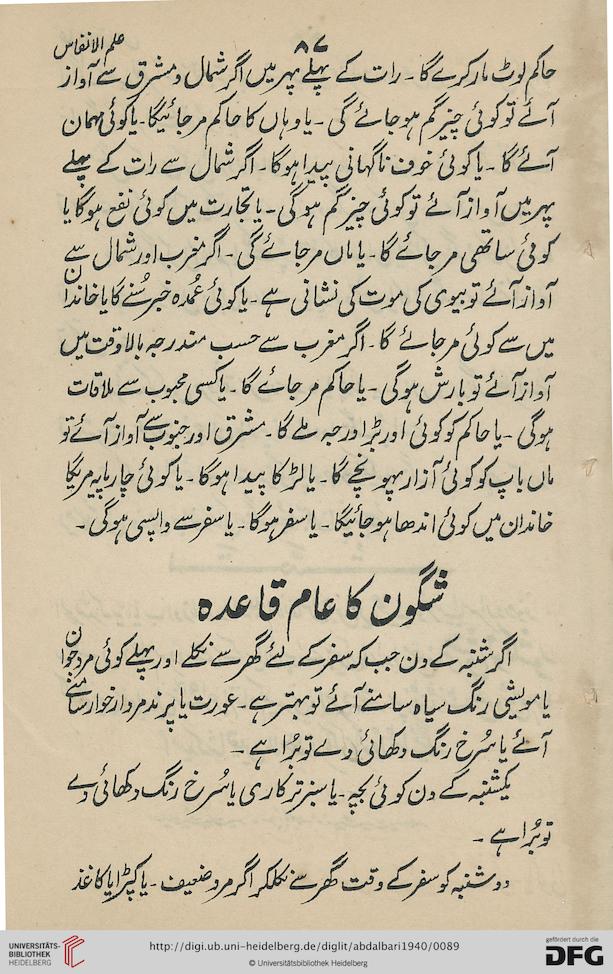 علم الانفاس
٨٧
حاکم لوٹ مار کرے گا ۔ رات کے پہلے پہر میں اگر شمال و مشرق سے آواز
آئے تو کوئی چیز گم ہو جائے گی ۔ یا وہاں کا حاکم مر جائیگا ۔ یا کوئی مہمان
آئے گا ۔ یا کوئی خوف ناگہانی پیدا ہوگا ۔ اگر شمال سے رات کے پہلے
پہر میں آواز آئے تو کوئی چیز گم ہوگی ۔ یا تجارت میں کوئی نفع ہوگا یا
کوئی ساتھی مر جائے گا ۔ یا ماں مر جائے گی ۔ اگر مغرب اور شمال سے
آواز آئے تو بیوی کی موت کی نشانی ہے ۔ یا کوئی عُمدہ خبر سُنے گا یا خاندان
میں سے کوئی مر جائے گا ۔ اگر مغرب سے حسب مندرجہ بالا وقت میں
آواز آئے تو بارش ہوگی ۔ یا حاکم مر جائے گا ۔ یا کسی محبوب سے ملاقات
ہوگی ۔ یا حاکم کو کوئی اور بڑا درجہ ملے گا ۔ مشرق اور جنوب سے آواز آئے تو
ماں باپ کو کوئی آزار پہونچے گا ۔ یا لڑکا پیدا ہوگا ۔ یا کوئی چارپایہ مریگا
خاندان میں کوئی اندھا ہو جائیگا ۔ یا سفر ہوگا ۔ یا سفر سے واپسی ہوگی ۔
شگون کا عام قاعدہ
اگر شنبہ کے دن جب کہ سفر کے لئے گھر سے نکلے اور پہلے کوئی مرد جوان
یا مویشی رنگ سیاہ سامنے آئے تو بہتر ہے ۔ عورت یا پرند مردار خوار سامنے
آئے یا سُرخ رنگ دکھائی دے تو بُرا ہے ۔
یکشنبہ کے دن کوئی بچہ ۔ یا سبز ترکاری یا سُرخ رنگ دکھائی دے
تو بُرا ہے ۔
دوشنبہ کو سفر کے وقت گھر سے نکلکر اگر مرد ضعیف ۔ یا کپڑا یا کاغذ
UNIVERSITÄTS-
BIBLIOTHEK
HEIDELBERG
http://digi.ub.uni-heidelberg.de/diglit/abdalbari1940/0089
© Universitätsbibliothek Heidelberg
gefördert durch die
DFG